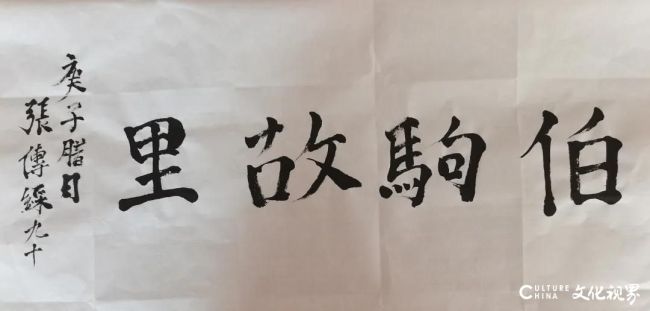 伯駒故里
庚子腊月
張傳綵九十
CULTURE CHINA 文化视界